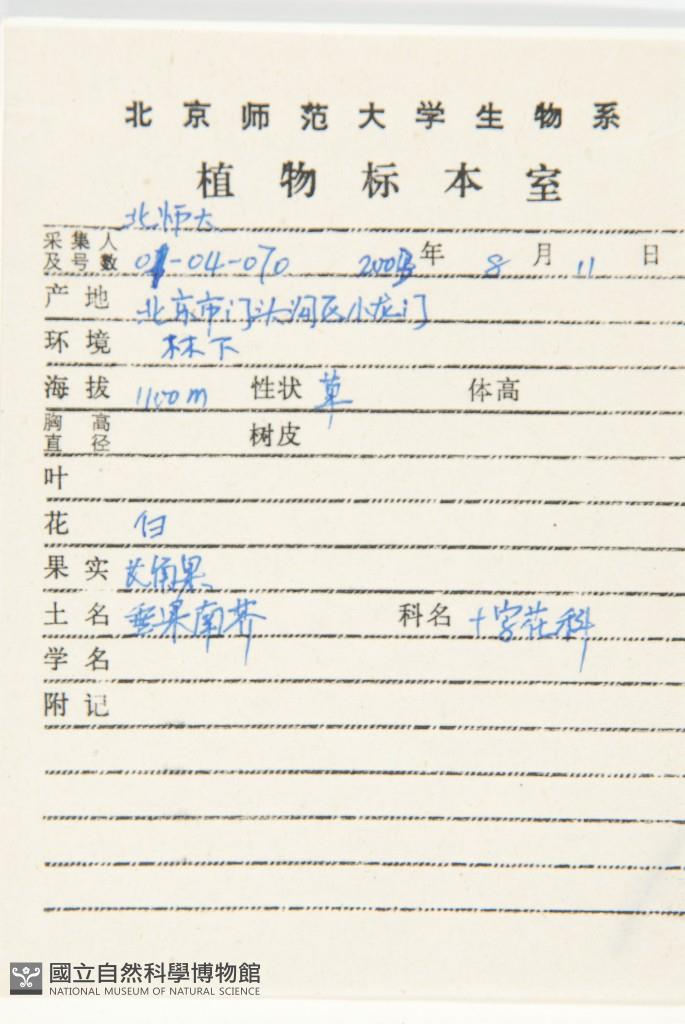 北京师范大学生物系
植物标本室
北师大
采集人
及号数 -04-070 年 8 月 11 日
产地 北京市门头沟区小龙门
环境 林下
海拔 1100m 性状 草 体高
胸高
直径 树皮
叶
花 白
果实 长角果
土名 垂果南芥 科名 十字花科
学名
附记
國立自然科學博物館
NATIONAL MUSEUM OF NATURAL SCIENCE